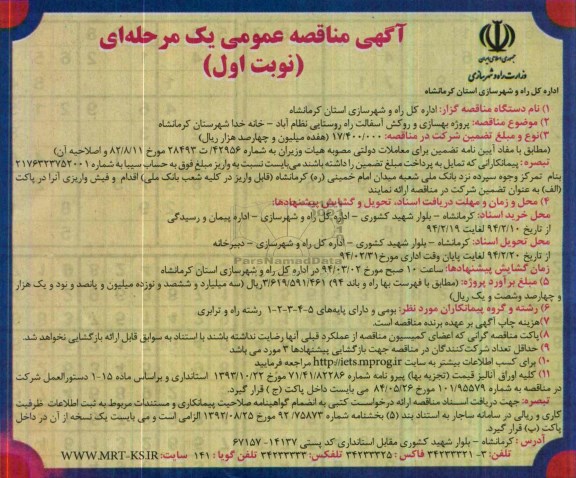 آگهی مناقصه عمومی یک مرحله‌ای
(نوبت اول)
جمهوری اسلامی ایران
وزارت راه و شهرسازی
اداره کل راه و شهرسازی استان کرمانشاه
۱) نام دستگاه مناقصه گزار: اداره کل راه و شهرسازی استان کرمانشاه
۲) موضوع مناقصه: پروژه بهسازی و روکش آسفالت راه روستایی نظام آباد - خانه خدا شهرستان کرمانشاه
۳) نوع و مبلغ تضمین شرکت در مناقصه: ۱۷/۴۰۰/۰۰۰ (هفده میلیون و چهارصد هزار ریال)
(مطابق با مفاد آیین نامه تضمین برای معاملات دولتی مصوبه هیات وزیران به شماره ۴۲۹۵۶/ ت ۲۸۴۹۳ مورخ ۸۲/۸/۱۱ و اصلاحیه آن)
تبصره: پیمانکارانی که تمایل به پرداخت مبلغ تضمین را داشته باشند می‌بایست نسبت به واریز مبلغ فوق به حساب سیبا به شماره ۲۱۷۶۳۲۳۷۵۲۰۰۱
بنام تمرکز وجوه سپرده نزد بانک ملی شعبه میدان امام خمینی (ره) کرمانشاه (قابل واریز در کلیه شعب بانک ملی) اقدام و فیش واریزی آنرا در پاکت
(الف) به عنوان تضمین شرکت در مناقصه ارائه نمایند
۴) محل و زمان و مهلت دریافت اسناد، تحویل و گشایش پیشنهادها:
محل خرید اسناد: کرمانشاه - بلوار شهید کشوری - اداره کل راه و شهرسازی - اداره پیمان و رسیدگی
از تاریخ ۹۴/۲/۱۰ لغایت ۹۴/۲/۱۹
محل تحویل اسناد: کرمانشاه - بلوار شهید کشوری - اداره کل راه و شهرسازی - دبیرخانه
از تاریخ ۹۴/۲/۲۰ لغایت پایان وقت اداری مورخ ۹۴/۰۲/۳۱
ParsNamadData
زمان گشایش پیشنهادها: ساعت ۱۰ صبح مورخ ۹۴/۰۳/۰۲ در اداره کل راه و شهرسازی استان کرمانشاه
۵) مبلغ برآورد پروژه: (مطابق با فهرست بها راه و باند ۹۴) ۳/۶۱۹/۵۹۱/۴۶۱ ریال (سه میلیارد و ششصد و نوزده میلیون و پانصد و نود و یک هزار
و چهارصد وشصت و یک ریال)
۶) رشته و گروه پیمانکاران مورد نظر: بومی و دارای پایه‌های ۵-۴-۳-۲-۱ رشته راه و ترابری
۷) هزینه چاپ آگهی بر عهده برنده مناقصه است.
۸) پاکت مناقصه گرانی که اعضای کمیسیون مناقصه از عملکرد قبلی آنها رضایت نداشته باشند با استناد به سوابق قابل ارائه بازگشایی نخواهد شد.
۹) حداقل تعداد شرکت‌کنندگان در مناقصه جهت بازگشایی پیشنهادها ۳ مورد می باشد
۱۰) برای کسب اطلاعات بیشتر به سایت http://iets.mprog.ir مراجعه فرمایید
۱۱) کلیه اوراق آنالیز قیمت (تجزیه بها) پیرو نامه شماره ۷۱/۴۱/۸۲۲۸۶ مورخ ۱۳۹۳/۱۰/۲۲ استانداری و براساس ماده ۱۵-۱ دستورالعمل شرکت
در مناقصه به شماره ۱۰۱/۹۵۵۷۹ مورخ ۸۴/۰۵/۲۶ می بایست داخل پاکت (ج) قرار گیرد.
تبصره: جهت دریافت اسناد مناقصه ارائه درخواست کتبی به انضمام گواهینامه صلاحیت پیمانکاری و مستندات مربوط به ثبت اطلاعات ظرفیت
کاری و ریالی در سامانه ساجار به استناد بند (۵) بخشنامه شماره ۹۲/۷۵۸۷۳ مورخ ۱۳۹۲/۰۸/۲۵ الزامی است و می بایست یک نسخه از آن در داخل
پاکت (ب) قرار گیرد.
آدرس: کرمانشاه - بلوار شهید کشوری مقابل استانداری کد پستی ۱۴۱۳۷-۶۷۱۵۷
تلفن: ۳-۳۴۲۳۳۳۲۱ فاکس: ۳۴۲۳۳۳۲۵ تلفکس: ۳۴۲۳۳۳۳۳ تلفن گویا: ۱۴۱ سایت: WWW.MRT-KS.IR